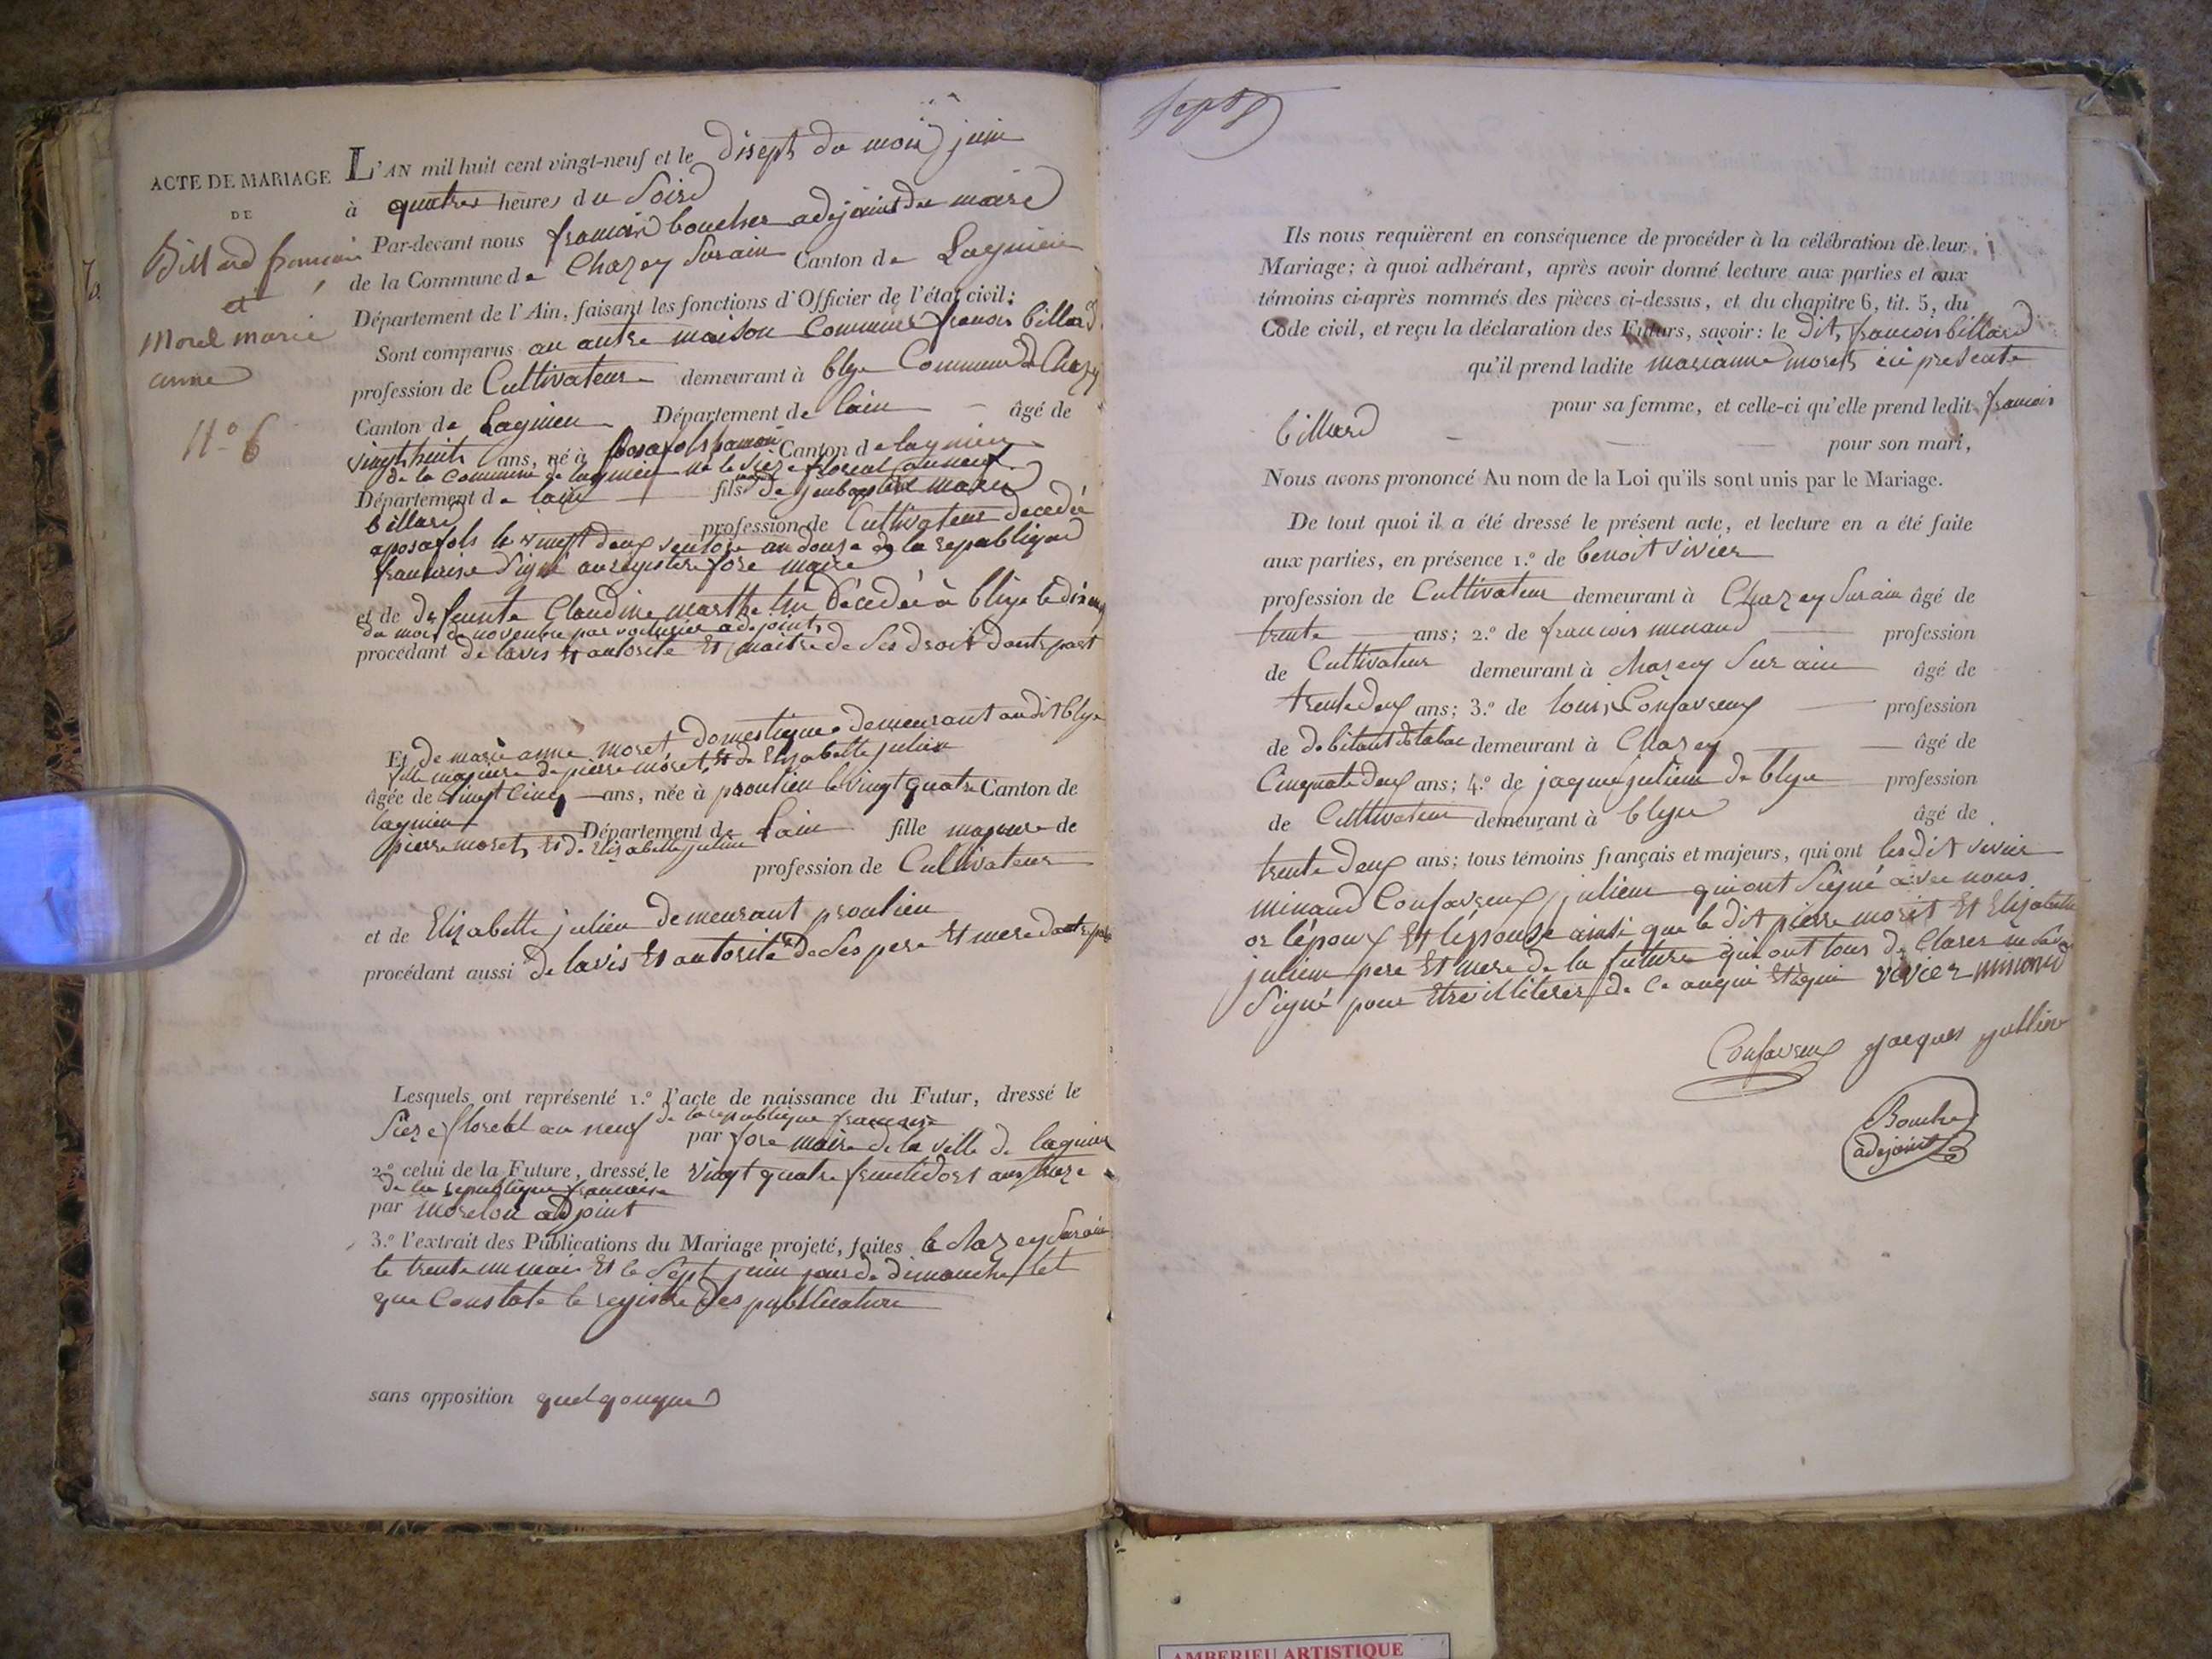 ACTE DE MARIAGE
DE
Billard francois
et
Morel marie
anne
N.o 6
L'AN mil huit cent vingt-neuf et le disept du mois juin
à quatres heures du Soird
Par-devant nous francois boucher adejoint du maire
de la Commune de Chazey Surain Canton de Lagnieu
Département de l'Ain, faisant les fonctions d'Officier de l'état civil;
Sont comparus au autre maison Commune francois billard
profession de Cultivateur demeurant à blye Commune de Chazey
Canton de Lagnieu Département de lain âgé de
vingt huit ans, né à Canton de lagnieu
de la Commune de lagnieu né le sièze floreal an neuf
Département de lain fils de jeanbaptiste marie
billard profession de Cultivateur decedé
aposafols le vingt deux ventose an douse de la republique
francoise Signé au registre fore maire
et de defeunte Claudine marthe decedée à blye le
du mois de novembre par voiturier adejoint
procédant de lavis et autorité Et maitre de Ses droit dautre part
Et de marie anne moret domestique demeurant audit blye
fille majeure de pierre moret, Et de Elizabette julien
âgée de vingt Cinq ans, née à proulieu le vingt quatre Canton de
lagnieu Département de Lain fille majeure de
pierre moret, Et de Elizabette julien
profession de Cultivateur
et de Elizabette julien demeurant proulieu
procédant aussi de lavis Et autorité de Ses pere Et mere dautre part
Lesquels ont représenté 1.o l'acte de naissance du Futur, dressé le
Sieze floreal an neuf de la republique francoise
par fore maire de la ville de lagnieu
2.o celui de la Future, dressé le vingt quatre fructidort ans
de la republique francoise
par morelon adjoint
3.o l'extrait des Publications du Mariage projeté, faites à chazey Surain
le trente un mai Et le Sept juin jour de dimanche tel
que Constate le registre des publication
sans opposition quelqonque
Sept
Ils nous requièrent en conséquence de procéder à la célébration de leur
Mariage; à quoi adhérant, après avoir donné lecture aux parties et aux
témoins ci-après nommés des pièces ci-dessus, et du chapitre 6, tit. 5, du
Code civil, et reçu la déclaration des Futurs, savoir: le dit, francois billard
qu'il prend ladite marianne moret ici presente
pour sa femme, et celle-ci qu'elle prend ledit francois
billard
pour son mari,
Nous avons prononcé Au nom de la Loi qu'ils sont unis par le Mariage.
De tout quoi il a été dressé le présent acte, et lecture en a été faite
aux parties, en présence 1.o de benoit vivier
profession de Cultivateur demeurant à Chazey Surain âgé de
trente ans; 2.o de francois minand profession
de Cultivateur demeurant à chazey Sur ain âgé de
trente deux ans; 3.o de louis Confavreux profession
de debitant de tabac demeurant à Chazey âgé de
Cinquate deux ans; 4.o de jaque julien de blye profession
de Cultivateur demeurant à blye âgé de
trente deux ans; tous témoins français et majeurs, qui ont les dit vivier
minand Confavreux julien qui ont Signé avec nous
or lépoux Et lépouse ainsi que le dit pierre moret Et Elizabette
julien pere Et mere de la future qui ont tous de Clarer ne Savoir
Signé pour être illiterer de Ce enqui Et requi vivier minand
Confavreux jacques jullien
Boucher
adejoint
AMBERIEU ARTISTIQUE